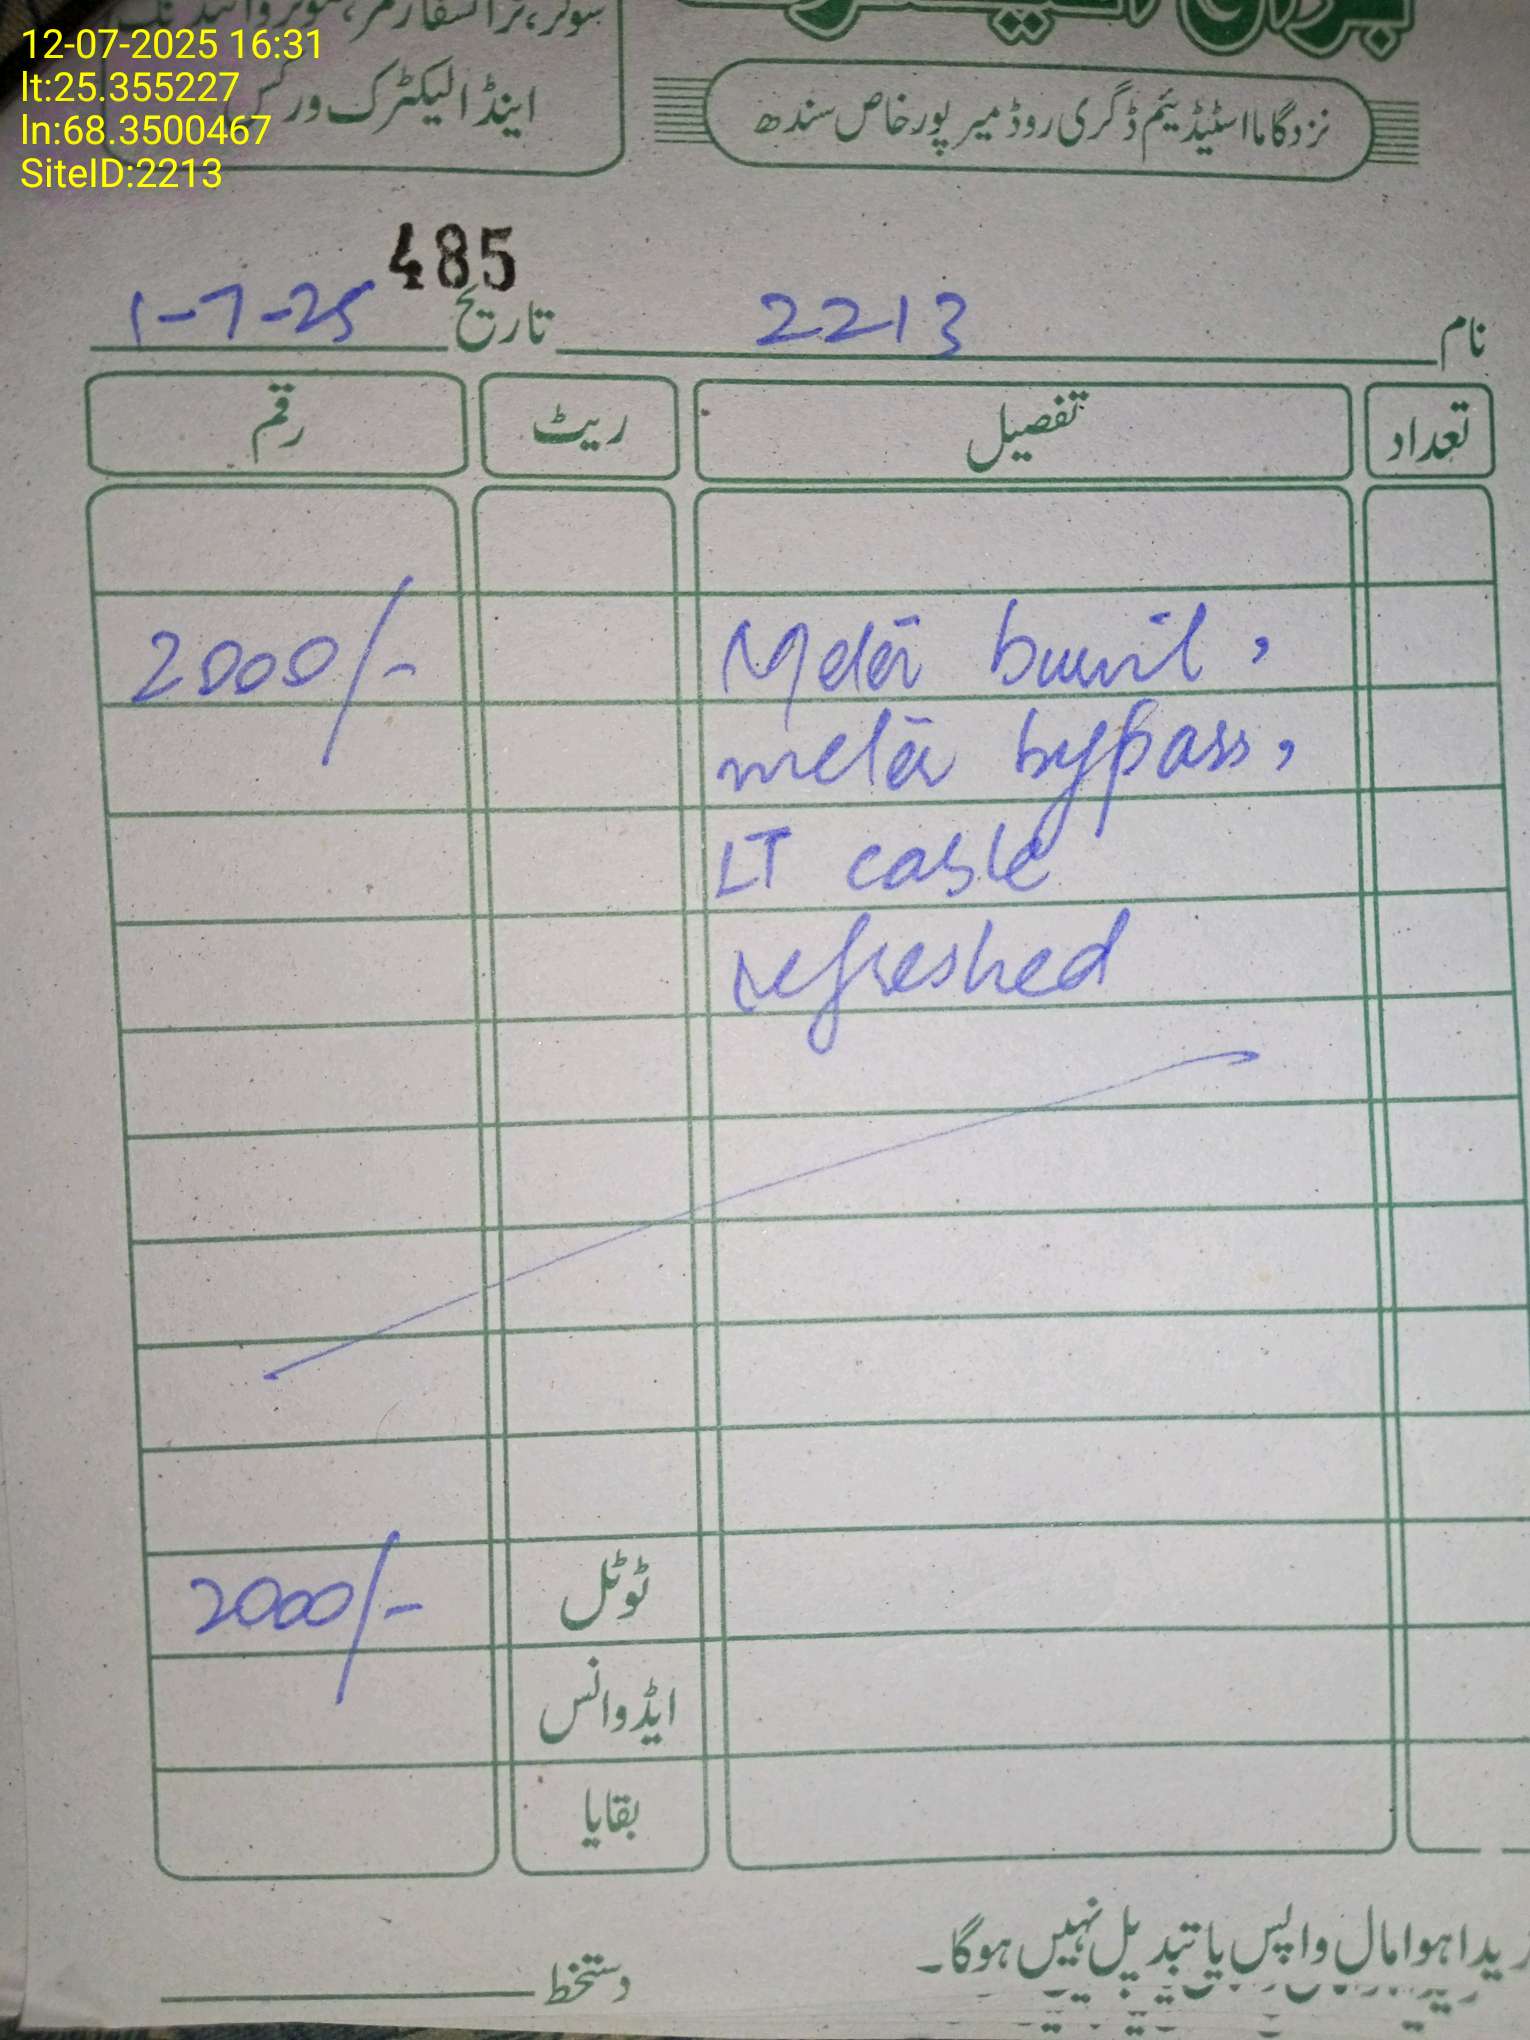 12-07-2025 16:31
lt:25.355227
ln:68.3500467
SiteID:2213
اینڈ الیکٹرک ورکس
نزد گاما اسٹیڈیئم ڈگری روڈ میرپورخاص سندھ
485
نام 2213 تاریخ 1-7-25
تعداد تفصیل ریٹ رقم
Meter burnt, 2000/-
meter bypass,
LT cable
refreshed
ٹوٹل 2000/-
ایڈوانس
بقایا
ہوا مال واپس یا تبدیل نہیں ہوگا۔
دستخط